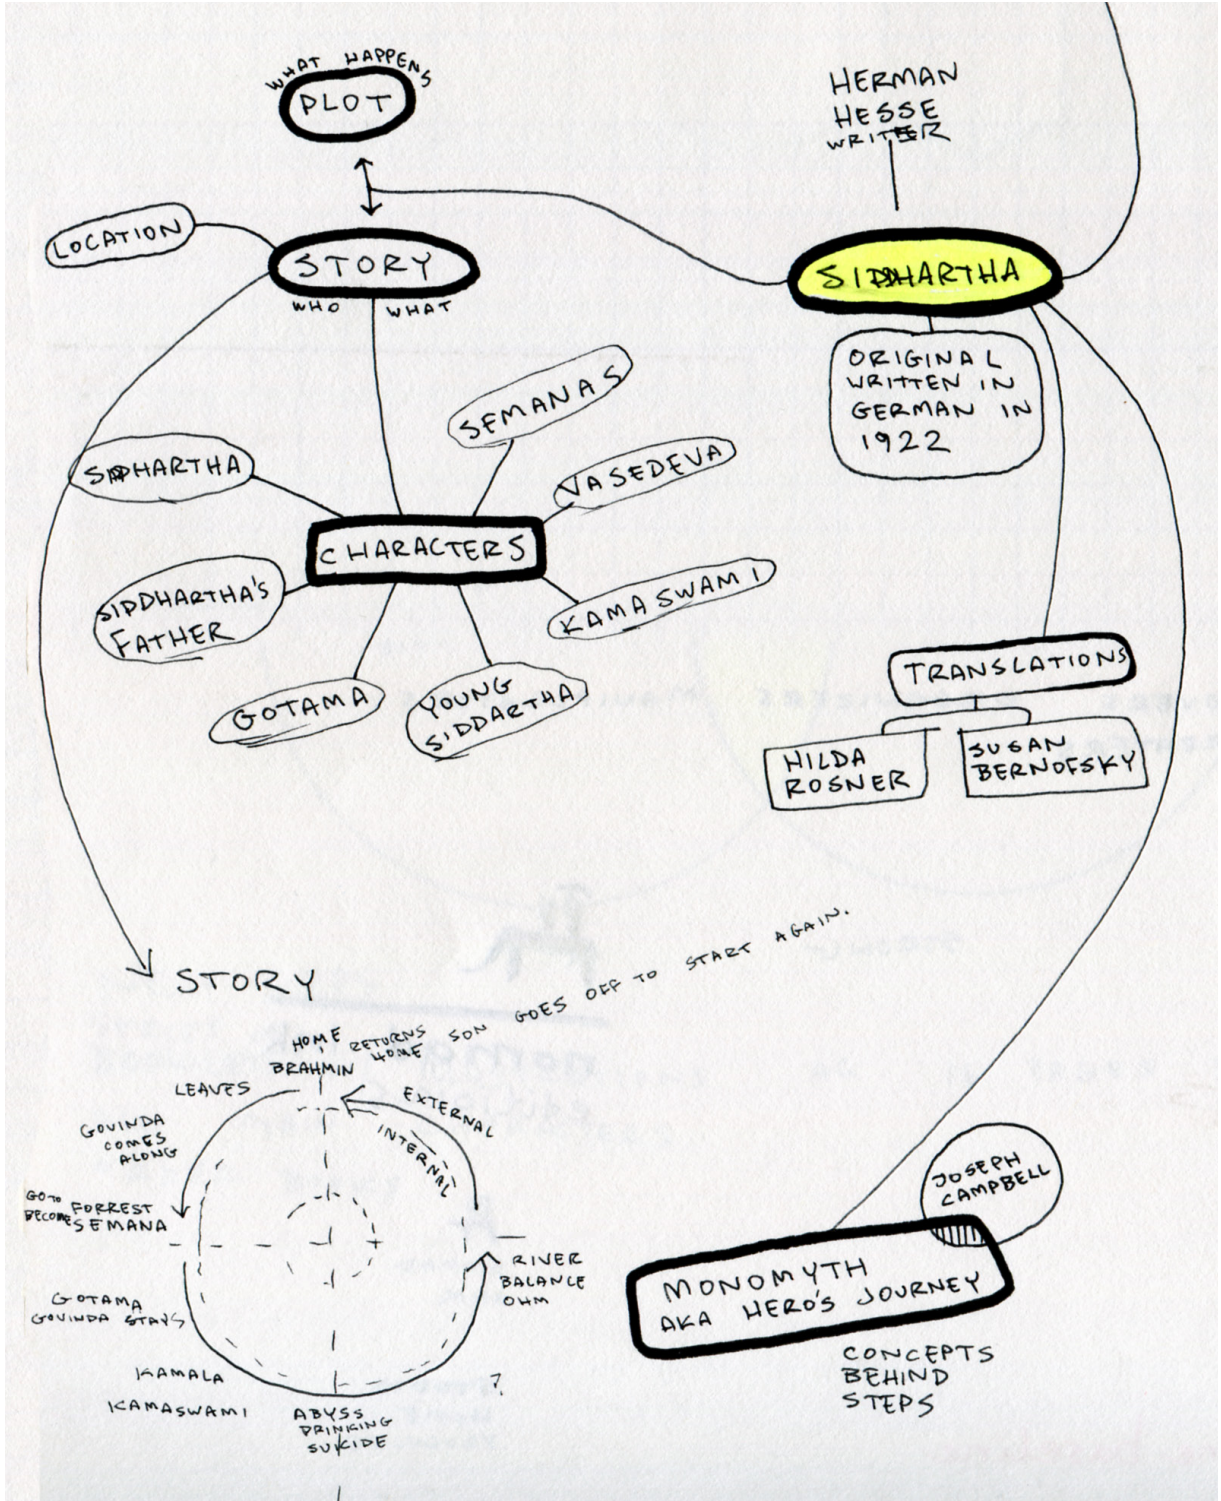 WHAT HAPPENS
PLOT
HERMAN
HESSE
WRITER
LOCATION
STORY
WHO WHAT
SIDDHARTHA
ORIGINAL
WRITTEN IN
GERMAN IN
1922
SEMANAS
VASEDEVA
SIDHARTHA
CHARACTERS
KAMASWAMI
SIDDHARTHA'S
FATHER
GOTAMA
YOUNG
SIDDARTHA
TRANSLATIONS
HILDA
ROSNER
SUSAN
BERNOFSKY
STORY
HOME
BRAHMIN
RETURNS
HOME
SON GOES OFF TO START AGAIN.
LEAVES
EXTERNAL
INTERNAL
GOVINDA
COMES
ALONG
GO TO FORREST
BECOME SEMANA
RIVER
BALANCE
OHM
GOTAMA
GOVINDA STAYS
KAMALA
KAMASWAMI
ABYSS
DRINKING
SUICIDE
?
JOSEPH
CAMPBELL
MONOMYTH
AKA HERO'S JOURNEY
CONCEPTS
BEHIND
STEPS